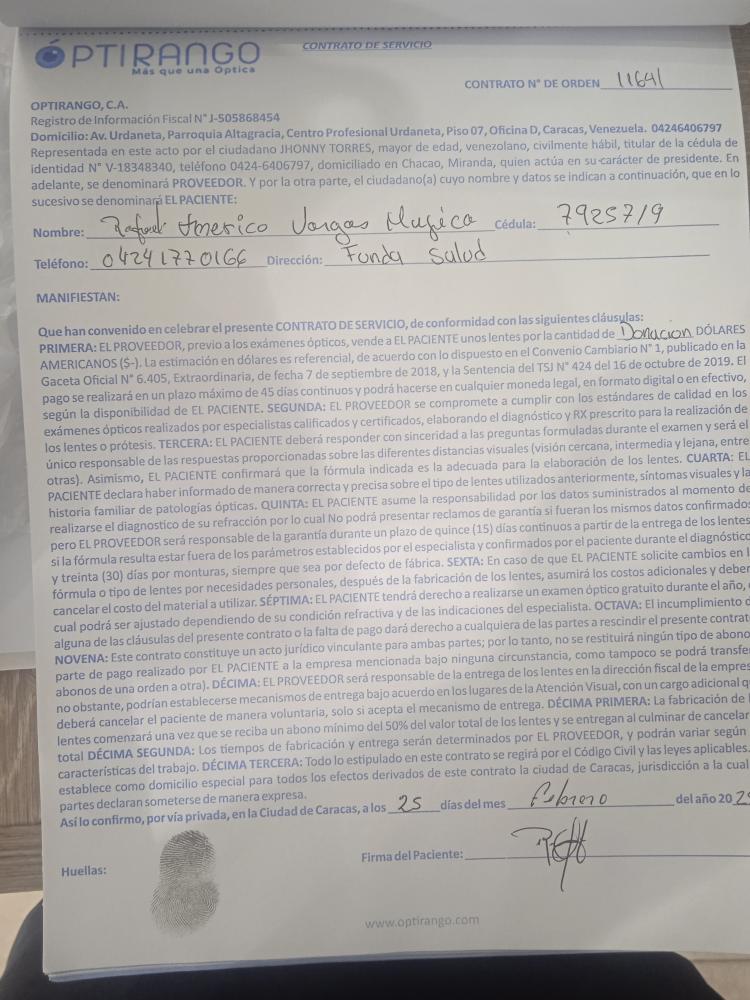 ÓPTIRANGO
Más que una Óptica
CONTRATO DE SERVICIO
CONTRATO N° DE ORDEN 11641
OPTIRANGO, C.A.
Registro de Información Fiscal N° J-505868454
Domicilio: Av. Urdaneta, Parroquia Altagracia, Centro Profesional Urdaneta, Piso 07, Oficina D, Caracas, Venezuela. 04246406797
Representada en este acto por el ciudadano JHONNY TORRES, mayor de edad, venezolano, civilmente hábil, titular de la cédula de
identidad N° V-18348340, teléfono 0424-6406797, domiciliado en Chacao, Miranda, quien actúa en su carácter de presidente. En
adelante, se denominará PROVEEDOR. Y por la otra parte, el ciudadano(a) cuyo nombre y datos se indican a continuación, que en lo
sucesivo se denominará EL PACIENTE:
Nombre: Rafael Americo Vargas Mugica Cédula: 7925719
Teléfono: 04241770166 Dirección: Funda Salud
MANIFIESTAN:
Que han convenido en celebrar el presente CONTRATO DE SERVICIO, de conformidad con las siguientes cláusulas:
PRIMERA: EL PROVEEDOR, previo a los exámenes ópticos, vende a EL PACIENTE unos lentes por la cantidad de Donacion DÓLARES
AMERICANOS ($-). La estimación en dólares es referencial, de acuerdo con lo dispuesto en el Convenio Cambiario N° 1, publicado en la
Gaceta Oficial N° 6.405, Extraordinaria, de fecha 7 de septiembre de 2018, y la Sentencia del TSJ N° 424 del 16 de octubre de 2019. El
pago se realizará en un plazo máximo de 45 días continuos y podrá hacerse en cualquier moneda legal, en formato digital o en efectivo,
según la disponibilidad de EL PACIENTE. SEGUNDA: EL PROVEEDOR se compromete a cumplir con los estándares de calidad en los
exámenes ópticos realizados por especialistas calificados y certificados, elaborando el diagnóstico y RX prescrito para la realización de
los lentes o prótesis. TERCERA: EL PACIENTE deberá responder con sinceridad a las preguntas formuladas durante el examen y será el
único responsable de las respuestas proporcionadas sobre las diferentes distancias visuales (visión cercana, intermedia y lejana, entre
otras). Asimismo, EL PACIENTE confirmará que la fórmula indicada es la adecuada para la elaboración de los lentes. CUARTA: EL
PACIENTE declara haber informado de manera correcta y precisa sobre el tipo de lentes utilizados anteriormente, síntomas visuales y la
historia familiar de patologías ópticas. QUINTA: EL PACIENTE asume la responsabilidad por los datos suministrados al momento de
realizarse el diagnostico de su refracción por lo cual No podrá presentar reclamos de garantía si fueran los mismos datos confirmados
pero EL PROVEEDOR será responsable de la garantía durante un plazo de quince (15) días continuos a partir de la entrega de los lentes
si la fórmula resulta estar fuera de los parámetros establecidos por el especialista y confirmados por el paciente durante el diagnóstico
y treinta (30) días por monturas, siempre que sea por defecto de fábrica. SEXTA: En caso de que EL PACIENTE solicite cambios en l
fórmula o tipo de lentes por necesidades personales, después de la fabricación de los lentes, asumirá los costos adicionales y deber
cancelar el costo del material a utilizar. SÉPTIMA: EL PACIENTE tendrá derecho a realizarse un examen óptico gratuito durante el año,
cual podrá ser ajustado dependiendo de su condición refractiva y de las indicaciones del especialista. OCTAVA: El incumplimiento d
alguna de las cláusulas del presente contrato o la falta de pago dará derecho a cualquiera de las partes a rescindir el presente contrat
NOVENA: Este contrato constituye un acto jurídico vinculante para ambas partes; por lo tanto, no se restituirá ningún tipo de abono
parte de pago realizado por EL PACIENTE a la empresa mencionada bajo ninguna circunstancia, como tampoco se podrá transfe
abonos de una orden a otra). DÉCIMA: EL PROVEEDOR será responsable de la entrega de los lentes en la dirección fiscal de la empres
no obstante, podrían establecerse mecanismos de entrega bajo acuerdo en los lugares de la Atención Visual, con un cargo adicional q
deberá cancelar el paciente de manera voluntaria, solo si acepta el mecanismo de entrega. DÉCIMA PRIMERA: La fabricación de l
lentes comenzará una vez que se reciba un abono mínimo del 50% del valor total de los lentes y se entregan al culminar de cancelar
total DÉCIMA SEGUNDA: Los tiempos de fabricación y entrega serán determinados por EL PROVEEDOR, y podrán variar según
características del trabajo. DÉCIMA TERCERA: Todo lo estipulado en este contrato se regirá por el Código Civil y las leyes aplicables.
establece como domicilio especial para todos los efectos derivados de este contrato la ciudad de Caracas, jurisdicción a la cual
partes declaran someterse de manera expresa.
Así lo confirmo, por vía privada, en la Ciudad de Caracas, a los 25 días del mes Febrero del año 202
Huellas:
Firma del Paciente:
www.optirango.com